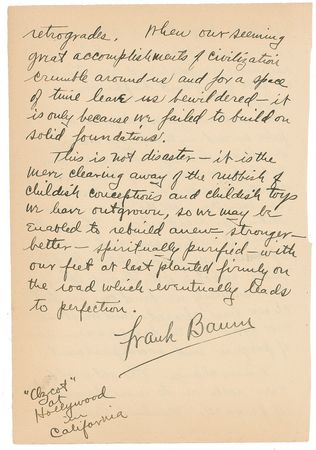 retrogrades. When our seeming
great accomplishments of civilization
crumble around us and for a space
of time leave us bewildered – it
is only because we failed to build on
solid foundations.
This is not disaster – it is the
mere clearing away of the rubbish of
childish conceptions and childish toys
we have outgrown, so we may be
enabled to rebuild anew – stronger –
better – spiritually purified – with
our feet at last planted firmly on
the road which eventually leads
to perfection.
Frank Baum
"Ozcot"
at
Hollywood
in
California